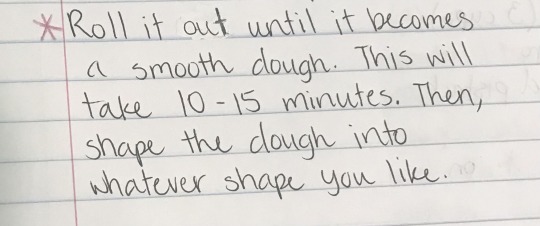 *Roll it out until it becomes
a smooth dough. This will
take 10-15 minutes. Then,
shape the dough into
whatever shape you like.